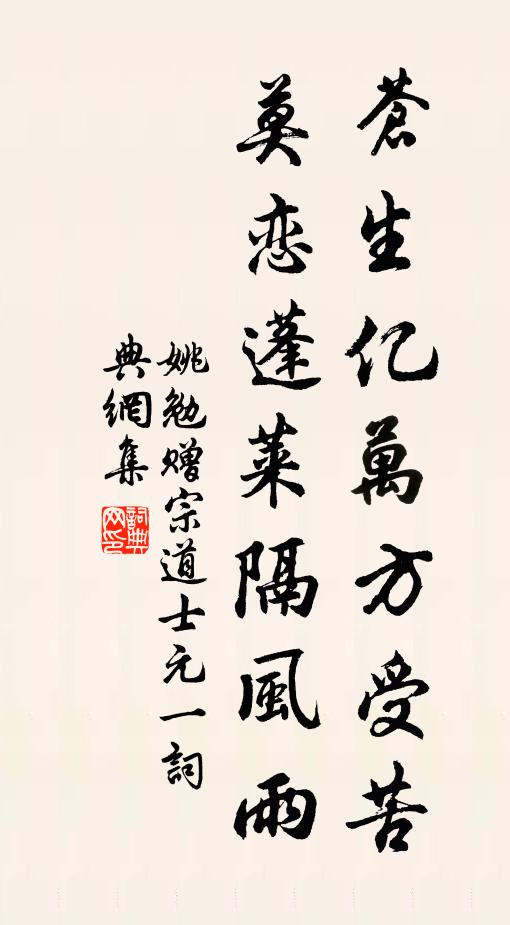 蒼生亿萬方受苦
莫恋蓬萊隔風雨
姚勉赠宗道士元一詞
典網集
詞典
网印